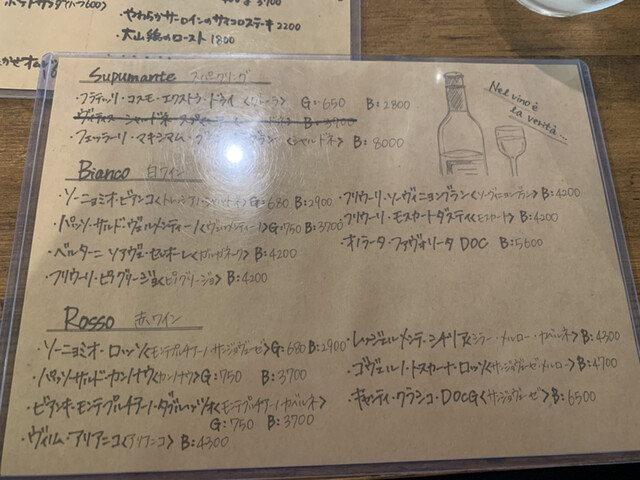 ポテトサラダ(ハーフ600)
3700
・やわらかサーロインのサイコロステーキ 2200
・大山鶏のロースト 1800
Nel vino è
la verità...
Supumante スパークリング
・フラテッリ・コスモ・エクストラ・ドライ G:650 B:2800
B:3900
・フェッラーリ・マキシマム <シャルドネ> B:8000
Bianco 白ワイン
・ソーニョミオ・ビアンコ G:680 B:2900
・パッソ・サルド・ヴェルメンティーノ<ヴェルメンティーノ> G:750 B:3700
・ベルターニ ソアヴェ・セレオーレ<ガルガネーガ> B:4200
・フリウーリ・ピノグリージョ<ピノグリージョ> B:4200
・フリウーリ・ソーヴィニョンブラン<ソーヴィニョンブラン> B:4200
・フリウーリ・モスカートダスティ<モスカート> B:4200
・オノラータ・ファヴォリータ DOC B:5600
Rosso 赤ワイン
・ソーニョミオ・ロッソ<モンテプルチアーノ・サンジョヴェーゼ> G:680 B:2900
・パッソ・サルド・カンノナウ<カンノナウ> G:750 B:3700
・ビアンキ・モンテプルチアーノ・ダブルッツォ<モンテプルチアーノ・カベルネ>
G:750 B:3700
・ヴィルム・アリアニコ<アリアニコ> B:4300
・レッジェルメンテ・シチリア<シラー・メルロー・カベルネ> B:4300
・ゴヴェルノ・トスカーナ・ロッソ<サンジョヴェーゼ・メルロー> B:4700
・キャンティ・クラシコ・DOCG<サンジョヴェーゼ> B:6500